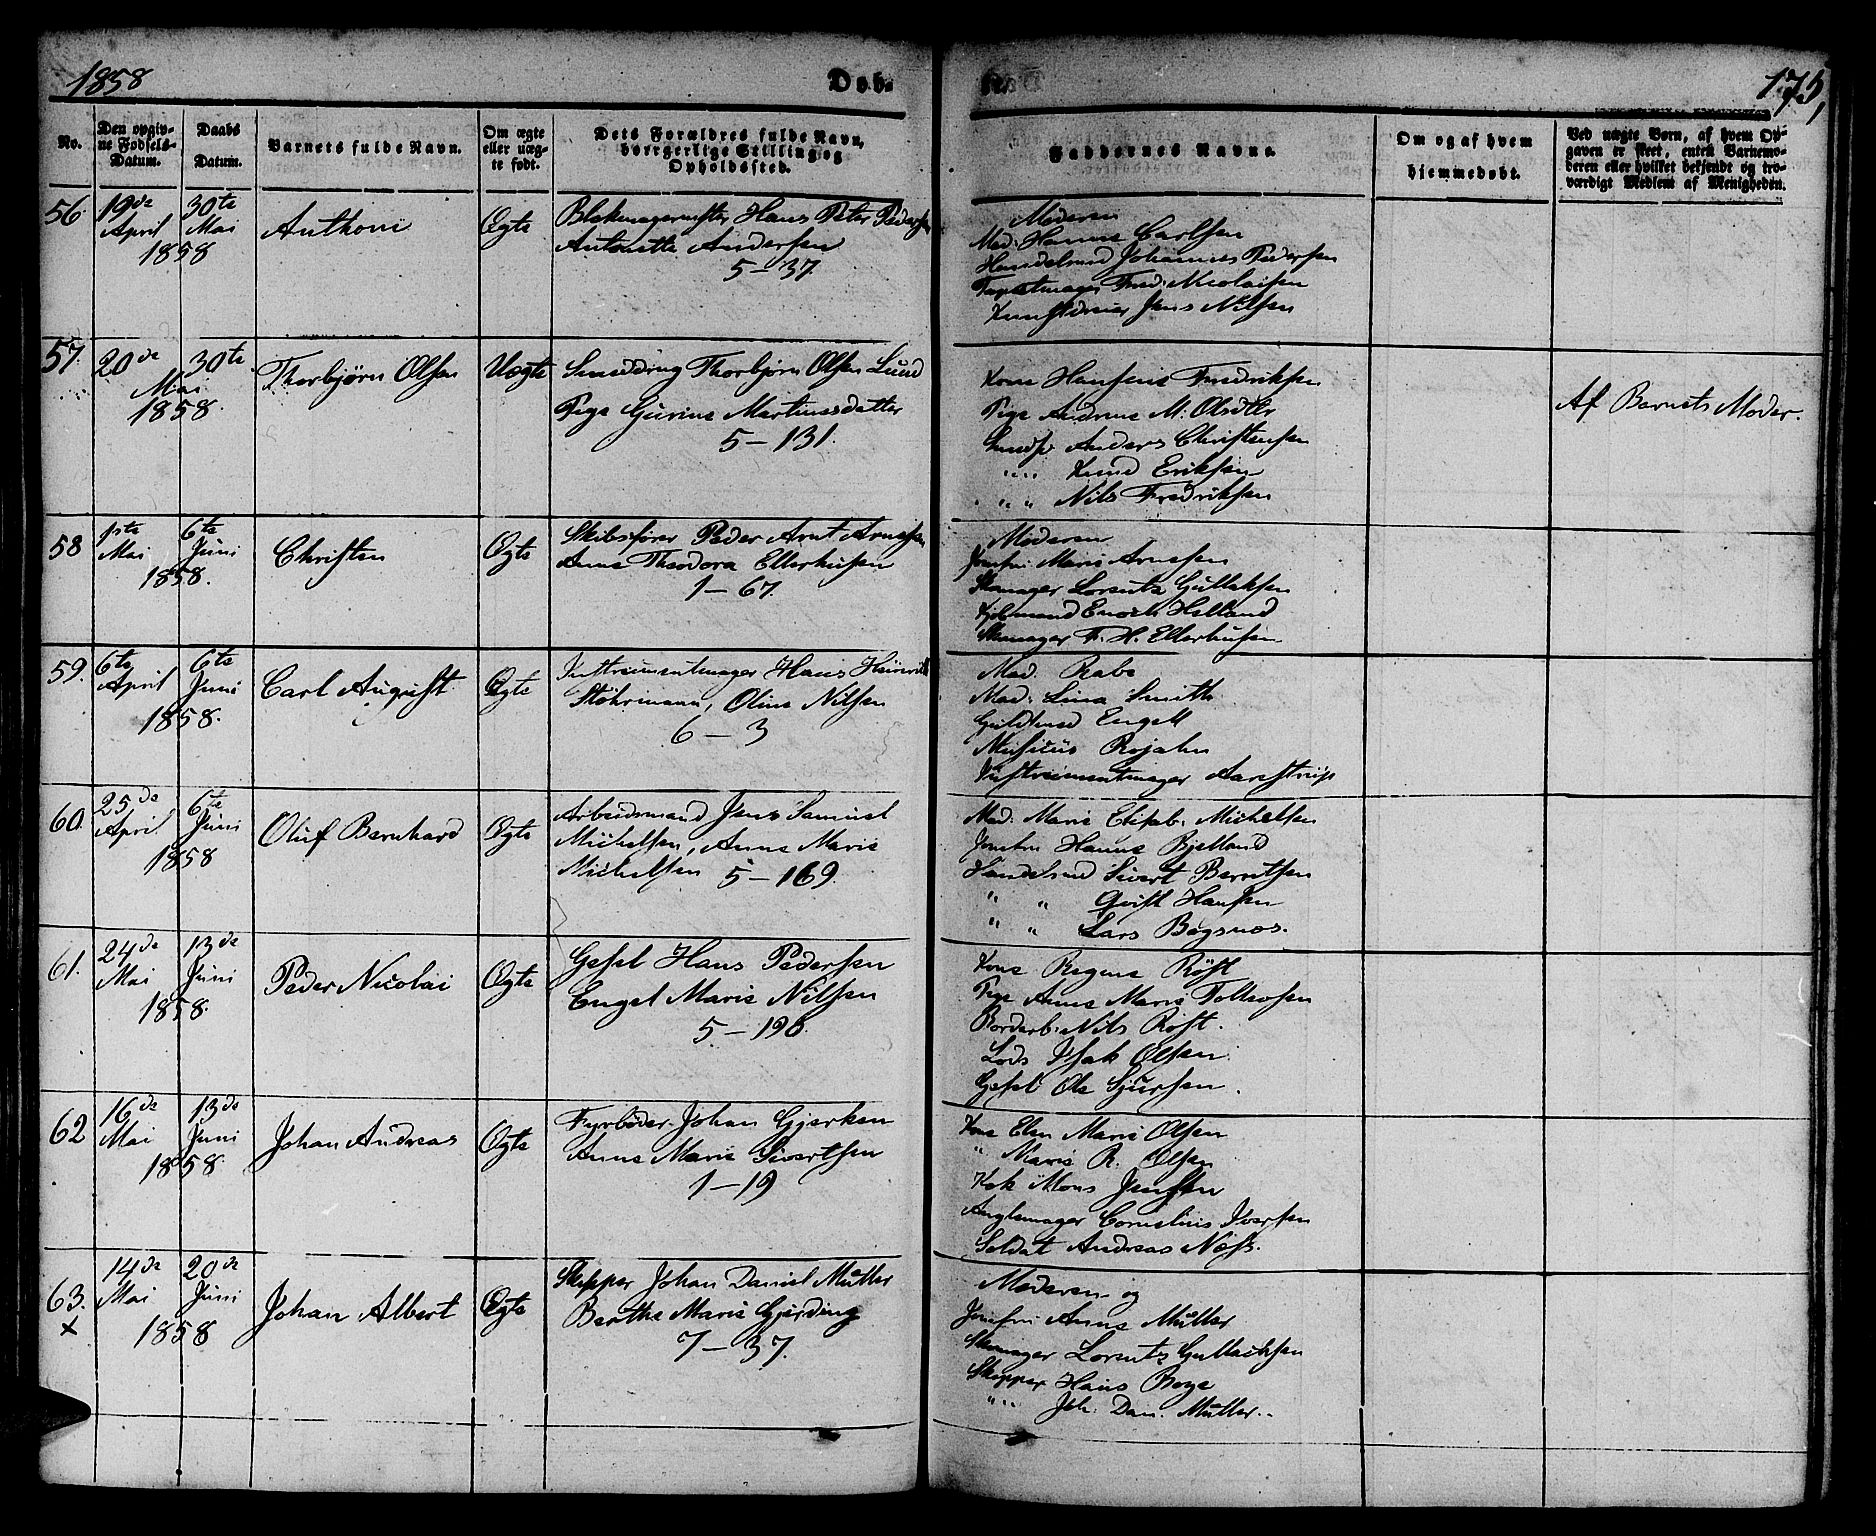 1858
Døb-
te.
175,
No.
Den opgiv-
ne Fødsels-
Datum.
Daabs
Datum.
Barnets fulde Navn.
Om ægte
eller uæg-
te født.
Dets Forældres fulde Navn,
borgerlige Stilling og
Opholdssted.
Faddernes Navne.
Om og af hvem
hjemmedøbt.
Ved uægte Børn, af hvem Op-
gaven er skeet, enten Barnemo-
deren eller hvilket bekjendt og tro-
værdigt Medlem af Menigheden.
56
19de
April
30te
Mai
1858
Anthoni
Ægte
Blokmagermester Hans Peter Pedersen
Antonette Andersen
5–37.
Moderen
Mad. Hanne Carlsen
Handelsmd Johannes Pedersen
Tapetmager Fred. Nicolaisen
Kunstdreier Jens Nilsen
57.
20de
30te
Mai
1858.
Thorbjørn Olsen
Uægte
Smeddreng Thorbjørn Olsen Lund
Pige Gurine Martinusdatter
5–131.
Kone Hansine Fredriksen
Pige Andrine M. Olsdtr
Smedsv. Anders Christensen
" " Knud Eriksen
" " Nils Fredriksen
Af Barnets Moder.
58
1ste
Mai
6te
Juni
1858.
Christen
Ægte
Skibsfører Peder Arnt Arnesen
Anne Theodora Ellerhusen
1–67.
Moderen
Jomfru Marie Arnesen
Skomager Lorentz Gullaksen
Kjøbmand Enoch Helland
Skomager F. H. Ellerhusen
59.
6te
April
6te
Juni
1858.
Carl August
Ægte
Instrumentmager Hans Heinrich
Støhrmann, Oline Nilsen
6–3
Mad. Rabe
Mad. Lina Smith
Guldsmed Engell
Musicus Rojahn
Instrumentmager Aarestrup
60.
25de
April
6te
Juni
1858
Oluf Bernhard
Ægte
Arbeidsmand Jens Samuel
Michelsen, Anne Marie
Michelsen 5–169.
Mad. Marie Elisab. Michelsen
Jomfru Hanne Bjelland
Handelsmd Sivert Berntsen
" " Qvist Hansen
" " Lars Bøgsnos.
61.
24de
Mai
13de
Juni
1858.
Peder Nicolai
Ægte
Gesel Hans Pedersen
Engel Marie Nilsen
5–196.
Kone Regine Røst
Pige Anne Marie Tollevsen
Bordarb. Nils Røst.
Lods Isak Olsen
Gesel Ole Sjursen.
62
16de
Mai
13de
Juni
1858.
Johan Andreas
Ægte
Fyrbøder Johan Gjerken
Anne Marie Sivertsen
1–19
Kone Elen Marie Olsen
" Marie R. Olsen
Kok Mons Jensen
Anglemager Cornelius Iversen
Soldat Andreas Næss.
63.
x
14de
Mai
20de
Juni
1858
Johan Albert
Ægte
Skipper Johan Daniel Müller
Berthe Marie Gjerding
7–37.
Moderen og
Jomfru Anne Müller
Skomager Lorentz Gullachsen
Skipper Hans Boge
" " Joh. Dan. Müller.